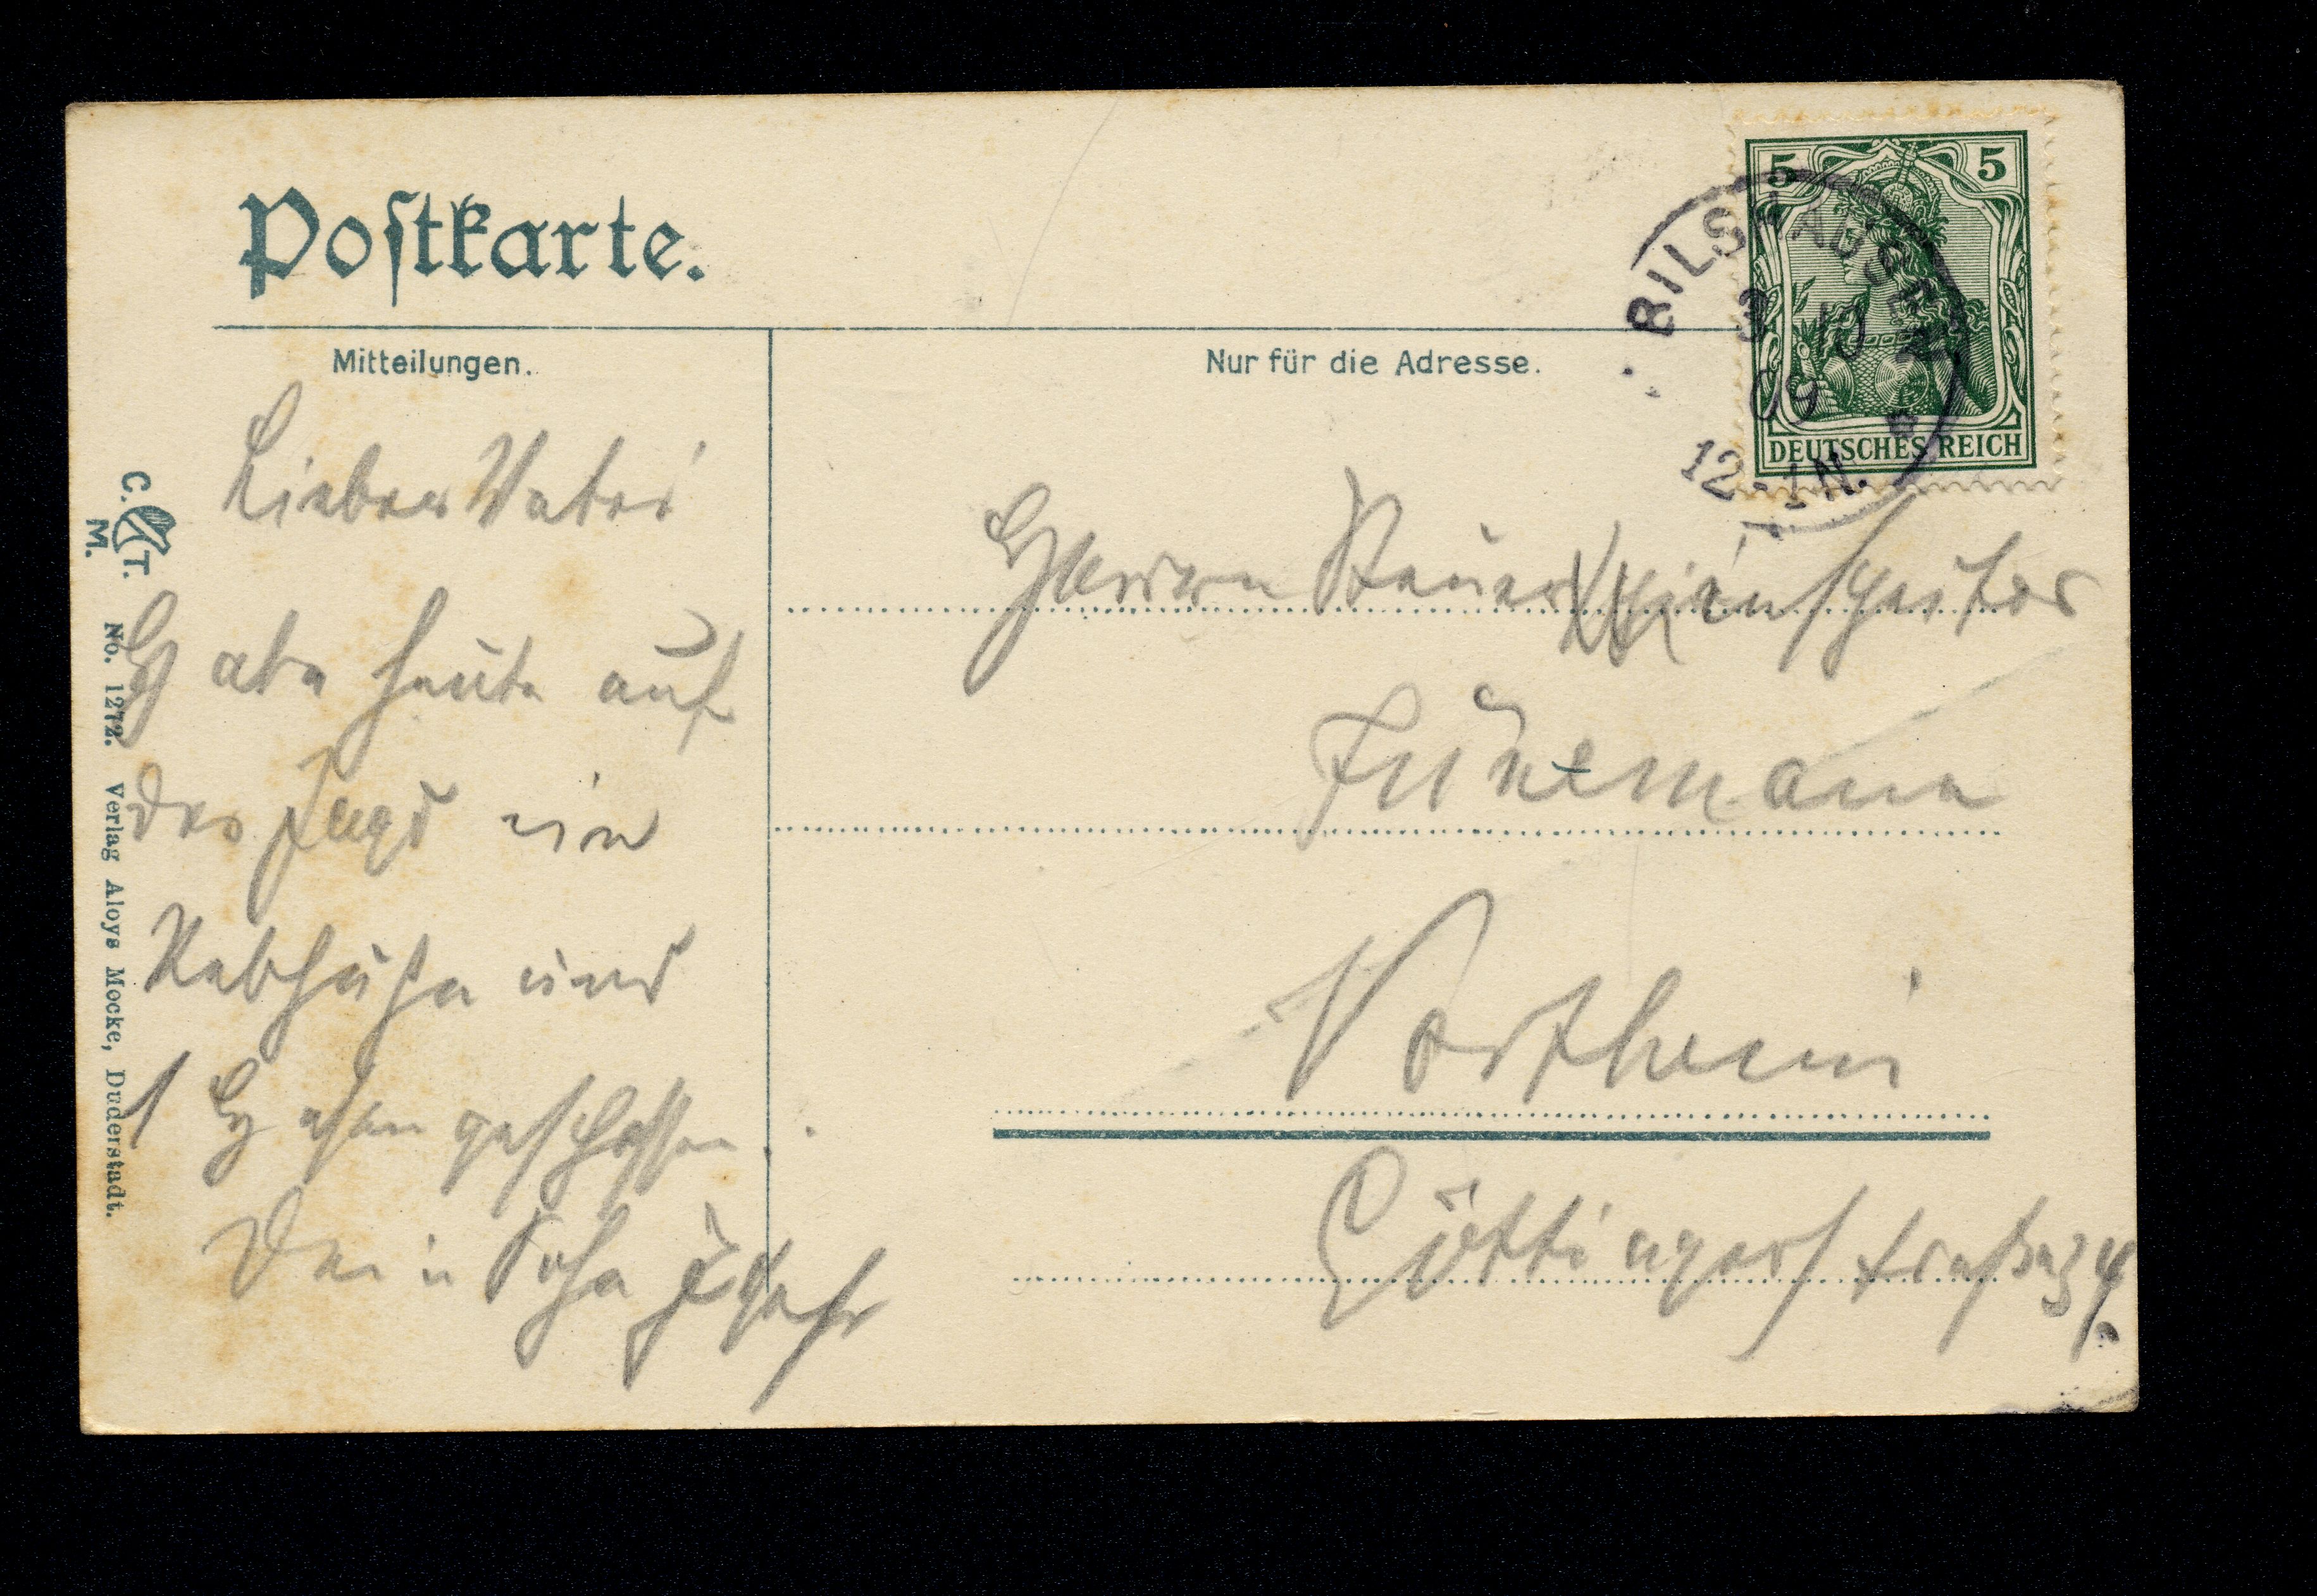 Postkarte.
Mitteilungen.
Nur für die Adresse.
5 5
DEUTSCHES REICH
BILSHAUSEN
3 10
09
12-1N.
Lieber Vater
Habe heute auf
der Jagd ein
Rebhuhn und
1 Hasen geschossen
Dein Sohn
Herrn Steuer inspektor
Fünemann
Northeim
Göttingerstraße 34.
C. T.
M.
No. 1272. Verlag Aloys Mocke, Duderstadt.